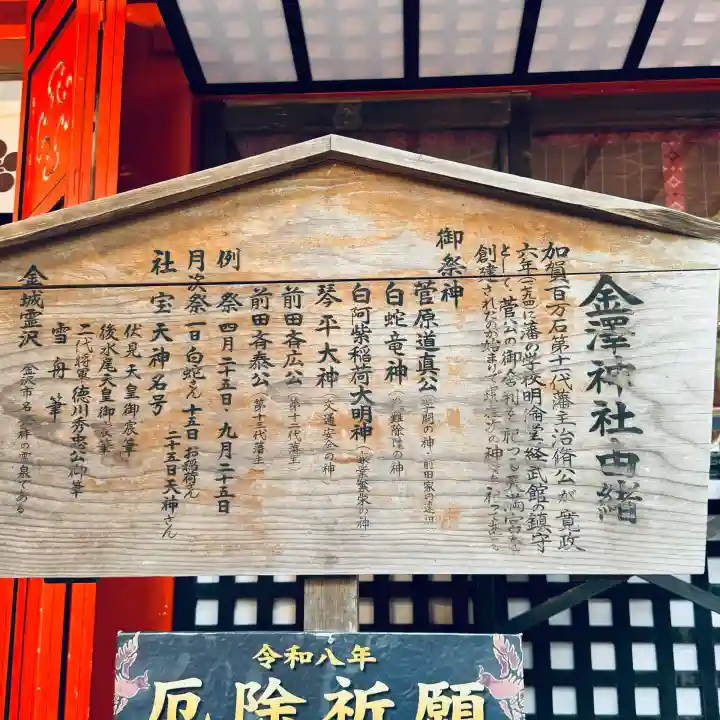 金澤神社由緒
加賀百万石第十一代藩主治脩公が寛政
六年(一七九四)に藩の学校明倫堂経武館の鎮守
として菅公の御舎利を祀つる天満宮を
創建されたのが始まりで
御祭神
菅原道真公(学問の神・前田家の遠祖)
白蛇竜神(災難除けの神)
白阿紫稲荷大明神(商売繁栄の神)
琴平大神(交通安全の神)
前田斉広公(第十二代藩主)
前田斉泰公(第十三代藩主)
例祭 四月二十五日・九月二十五日
月次祭 一日白蛇さん 十五日お稲荷さん
二十五日天神さん
社宝 天神名号
伏見天皇御宸筆
後水尾天皇御宸筆
二代将軍徳川秀忠公御筆
雪舟筆
金城霊沢 金沢市名発祥の霊泉である
令和八年
厄除祈願